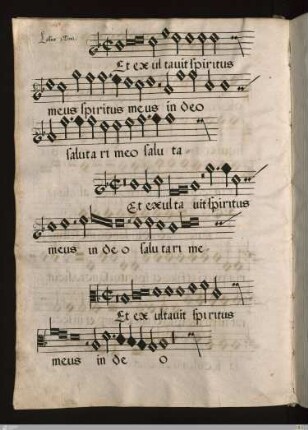 Et exultavit spiritus
meus spiritus meus in deo
salutari meo saluta
Et exulta vit spiritus
meus in deo salutari me
Et exultavit spiritus
meus in deo